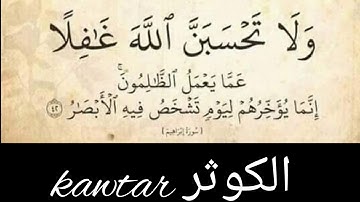 وَلَا تَحْسَبَنَّ اللَّهَ غَافِلًا
عَمَّا يَعْمَلُ الظَّالِمُونَ ۚ
إِنَّمَا يُؤَخِّرُهُمْ لِيَوْمٍ تَشْخَصُ فِيهِ الْأَبْصَارُ ٤٢
( سُورَةُ إِبْرَاهِيم )
kawtar الكوثر